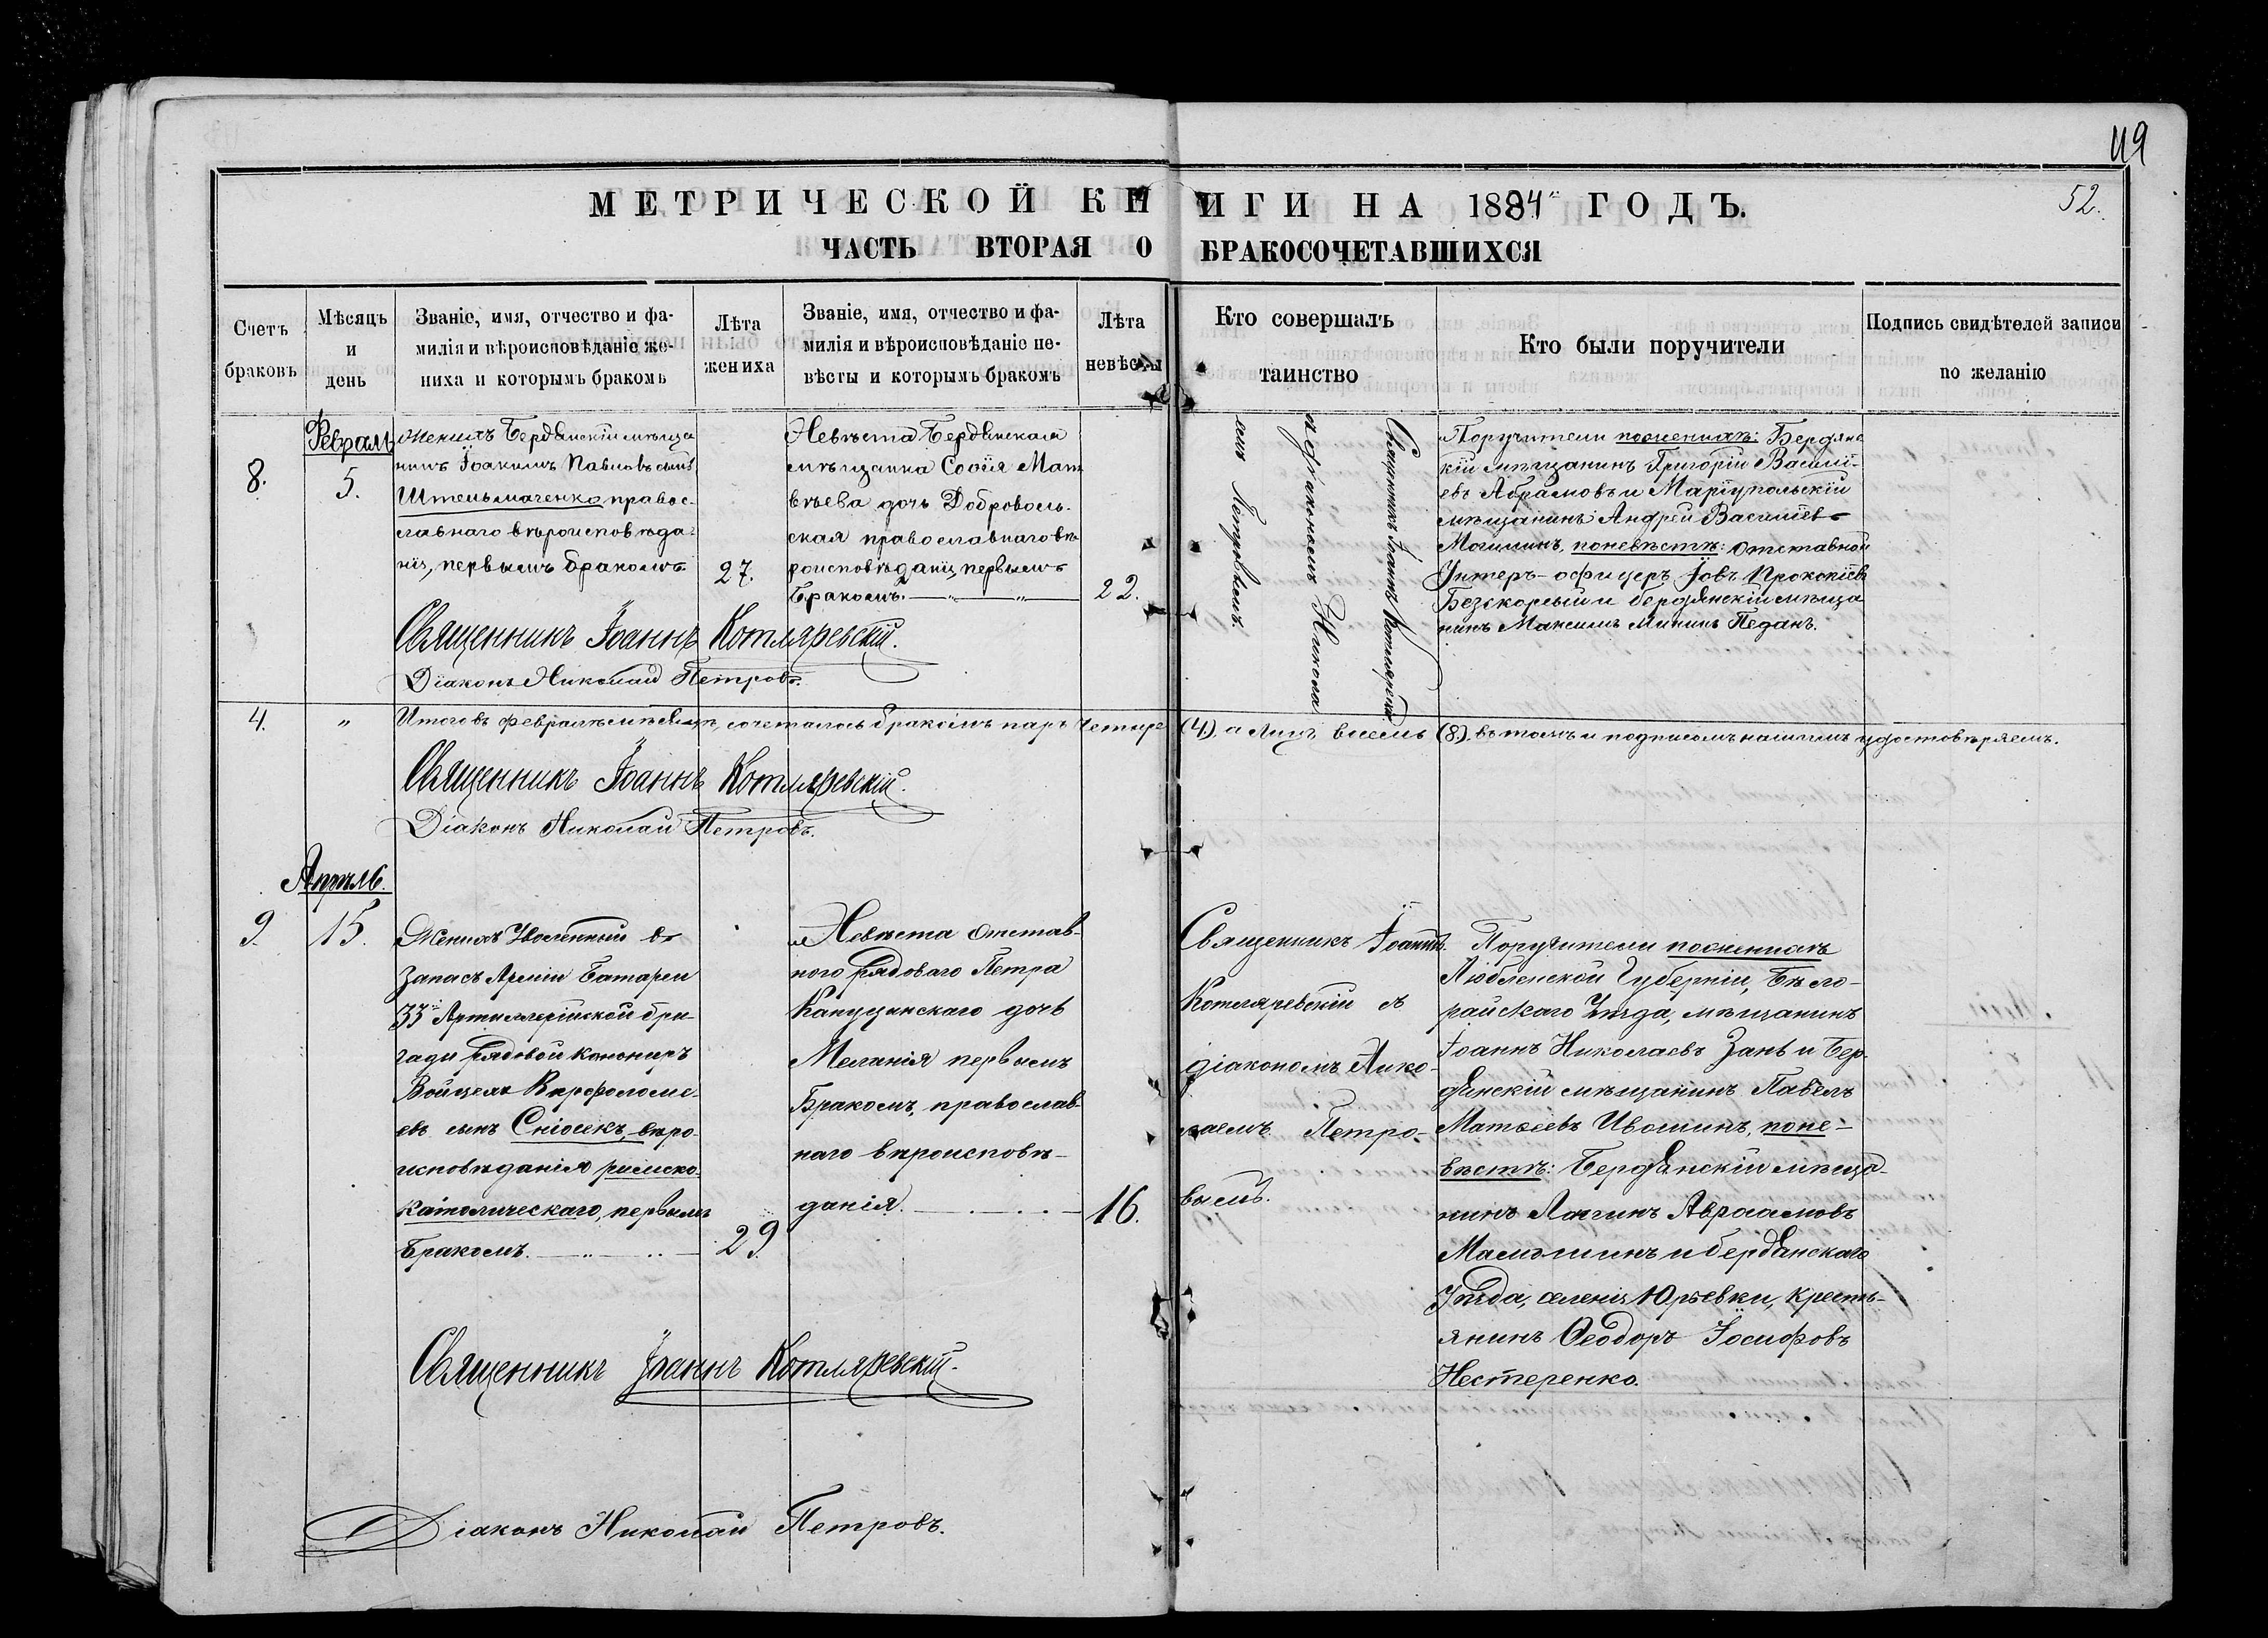 119
МЕТРИЧЕСКОЙ КНИГИ НА 1884й ГОДЪ.
52.
ЧАСТЬ ВТОРАЯ О БРАКОСОЧЕТАВШИХСЯ
Счетъ
браковъ
Мѣсяцъ
и
день
Званіе, имя, отчество и фа-
милія и вѣроисповѣданіе же-
ниха и которымъ бракомъ
Лѣта
жениха
Званіе, имя, отчество и фа-
милія и вѣроисповѣданіе не-
вѣсты и которымъ бракомъ
Лѣта
невѣсты
Кто совершалъ
таинство
Кто были поручители
Подпись свидѣтелей записи
по желанію
Февраль
8.
5.
Женихъ Бердянскій мѣща
нинъ Іоакимъ Павловъ сынъ
Штельмаченко правос-
славнаго вѣроисповѣда-
нія, первымъ бракомъ
27.
Невѣста Бердянская
мѣщанка Софія Мат
вѣева дочь Доброволь-
ская православнаго вѣ
роисповѣданія, первымъ
Бракомъ.
22.
Священникъ Іоаннъ Котляревскій
съ діакономъ Никола
емъ Петровымъ.
Поручители по женихѣ: Бердянс
кій мѣщанинъ Григорій Василі-
евъ Абрамовъ и Маріупольскій
мѣщанинъ Андрей Василіевъ
Могилинъ, по невѣстѣ: отставной
Унтеръ-офицеръ Іовъ Прокопіевъ
Безскорвый и бердянскій мѣща
нинъ Максимъ Мининъ Педанъ.
Священникъ Іоаннъ Котляревскій.
Діаконъ Николай Петровъ.
4. " Итого въ февралѣ мѣсяцѣ, сочеталось бракомъ паръ четыре (4), а лицъ восемь (8), въ томъ и подписомъ нашимъ удостовѣряемъ.
Священникъ Іоаннъ Котляревскій.
Діаконъ Николай Петровъ.
Апрѣль.
9.
15.
Женихъ Уволенный въ
Запасъ Арміи Батареи
33й Артиллерійской бри-
гады рядовой канониръ
Войцехъ Варфоломе-
евъ сынъ Сніосекъ, вѣро-
исповѣданія римско-
католическаго, первымъ
Бракомъ.
29.
Невѣста отстав-
ного рядоваго Петра
Капущинскаго дочь
Меланія первымъ
Бракомъ, православ-
наго вѣроисповѣ-
данія.
16.
Священникъ Іоаннъ
Котляревскій съ
діакономъ Нико-
лаемъ Петро-
вымъ.
Поручители по женихѣ
Люблинской Губерніи, Бѣло-
райскаго Уѣзда, мѣщанинъ
Іоаннъ Николаевъ Зань и Бер-
дянскій мѣщанинъ Павелъ
Матвѣевъ Ивошинъ, по не-
вѣстѣ: Бердянскій мѣща-
нинъ Логинъ Авраамовъ
Мамошинъ и бердянскаго
Уѣзда, селенія Юрьевки, кресть-
янинъ Ѳеодоръ Іосифовъ
Нестеренко.
Священникъ Іоаннъ Котляревскій.
Діаконъ Николай Петровъ.